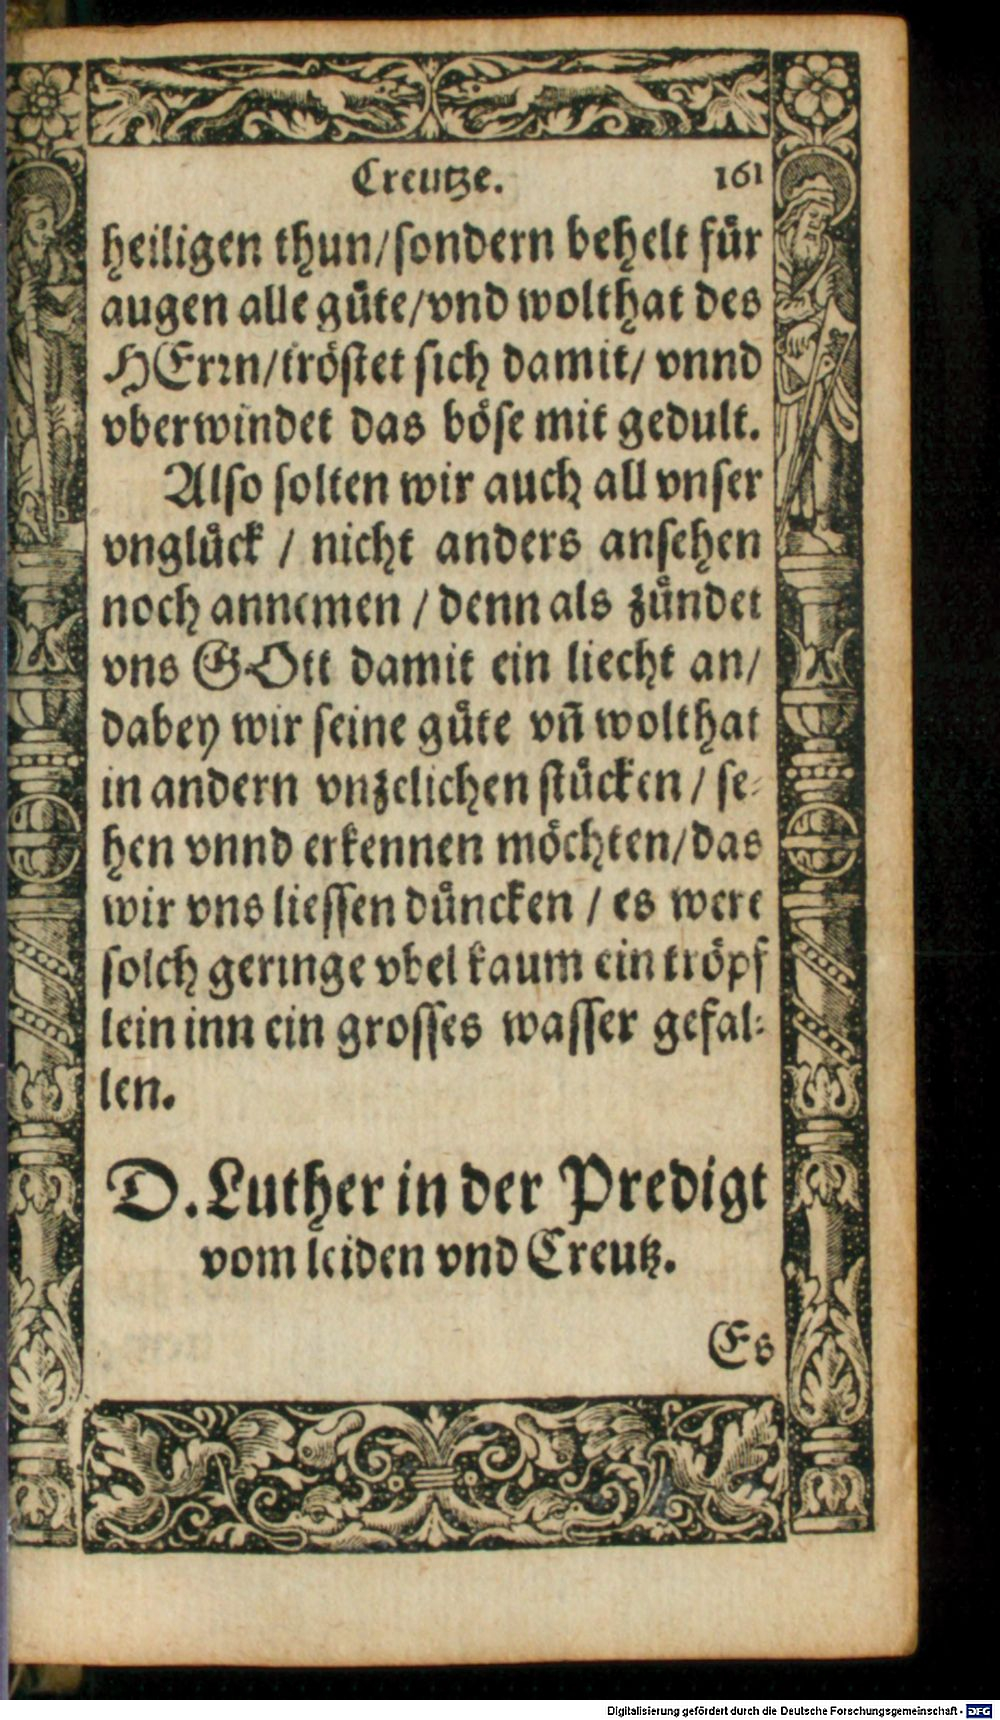 Creutze. 161
heiligen thun/sondern behelt fuͤr
augen alle guͤte/vnd wolthat des
HErꝛn/troͤstet sich damit/ vnnd
vberwindet das boͤse mit gedult.
Also solten wir auch all vnser
vngluͤck / nicht anders ansehen
noch annemen / denn als zuͤndet
vns GOtt damit ein liecht an/
dabey wir seine guͤte vn̄ wolthat
in andern vnzelichen stuͤcken / se-
hen vnnd erkennen moͤchten/das
wir vns liessen duͤncken / es were
solch geringe vbel kaum ein troͤpf
lein inn ein grosses wasser gefal-
len.
D. Luther in der Predigt
vom leiden vnd Creutz.
Es
Digitalisierung gefördert durch die Deutsche Forschungsgemeinschaft - DFG